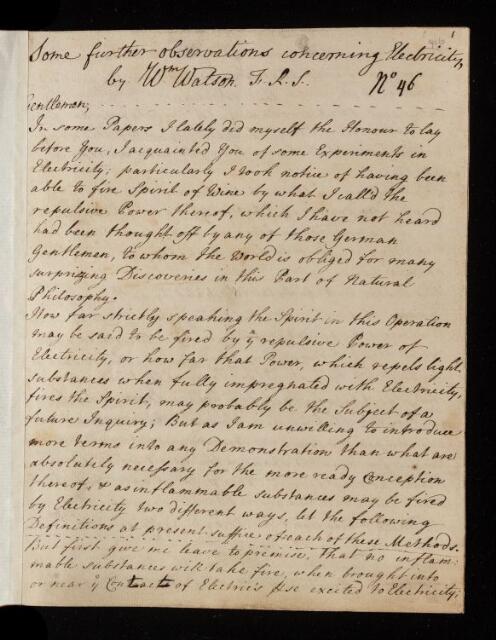 1
Some further observations concerning Electricity,
by Wm Watson F.R.S. No 46
Gentlemen,
In some Papers I lately did myself the Honour to lay
before You, I acquainted You of some Experiments in
Electricity; particularly I took notice of having been
able to fire Spirit of Wine by what I call'd the
repulsive Power thereof, which I have not heard
had been thought off by any of those German
Gentlemen, to whom the World is obliged for many
surprizing Discoveries in this Part of Natural
Philosophy.
How far strictly speaking the Spirit in this Operation
may be said to be fired by ye repulsive Power of
Electricity, or how far that Power, which repels light
substances when fully impregnated with Electricity,
fires the Spirit, may probably be the Subject of a
future Inquiry; But as I am unwilling to introduce
more terms into any Demonstration than what are
absolutely necessary for the more ready Conception
thereof, & as inflammable substances may be fired
by Electricity two different ways, let the following
Definitions at present suffice of each of these Methods.
But first give me leave to premise, that no inflam:
mable substances will take fire, when brought into
or near ye Contacts of Electrics excited to Electricity;